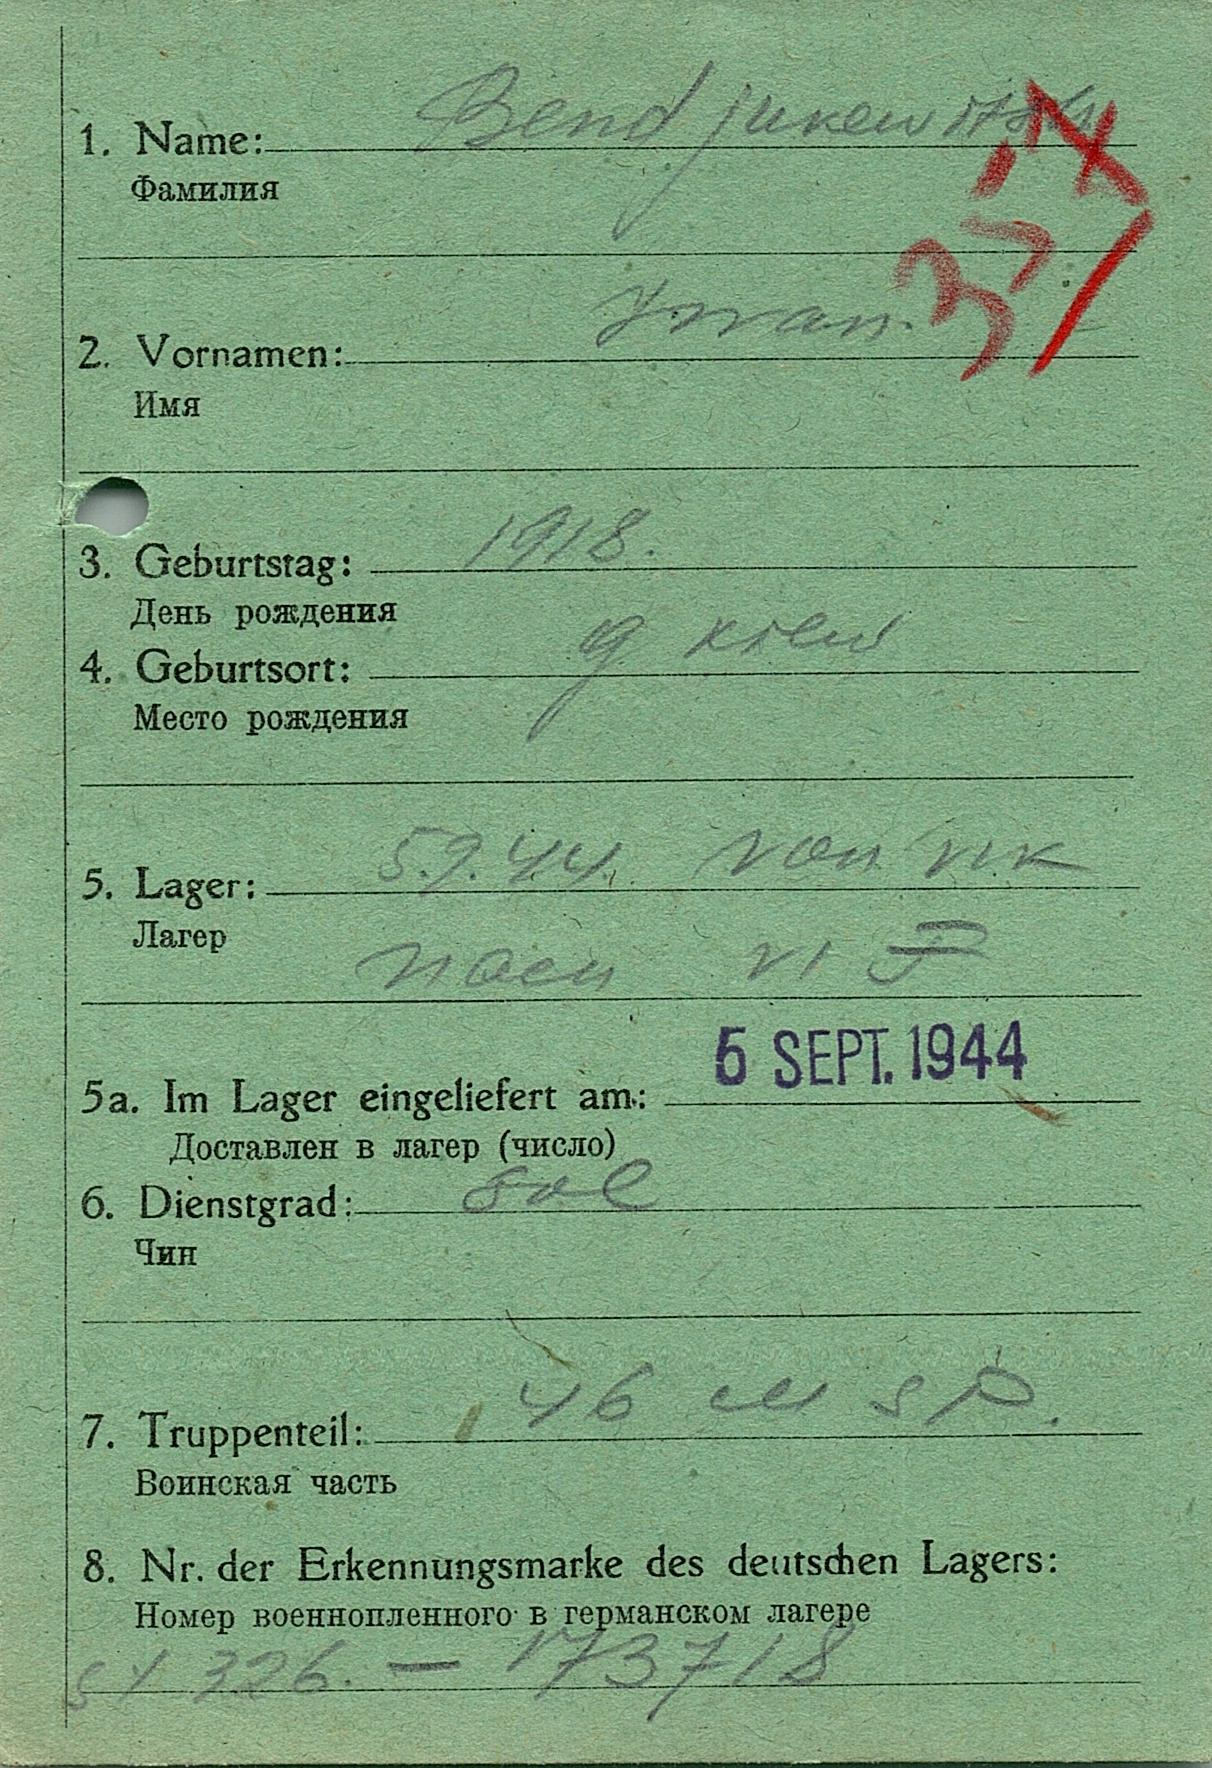 1. Name: Bendjukew
Фамилия
2. Vornamen: Iwan.
Имя
3. Geburtstag: 1918.
День рождения
4. Geburtsort: g. Kiew
Место рождения
5. Lager: 5.9.44. von VI K
Лагер nach VI F
5a. Im Lager eingeliefert am: 6 SEPT. 1944
Доставлен в лагер (число)
6. Dienstgrad: Sol
Чин
7. Truppenteil: 46 M S P.
Воинская часть
8. Nr. der Erkennungsmarke des deutschen Lagers:
Номер военнопленного в германском лагере
St 326. — 173718